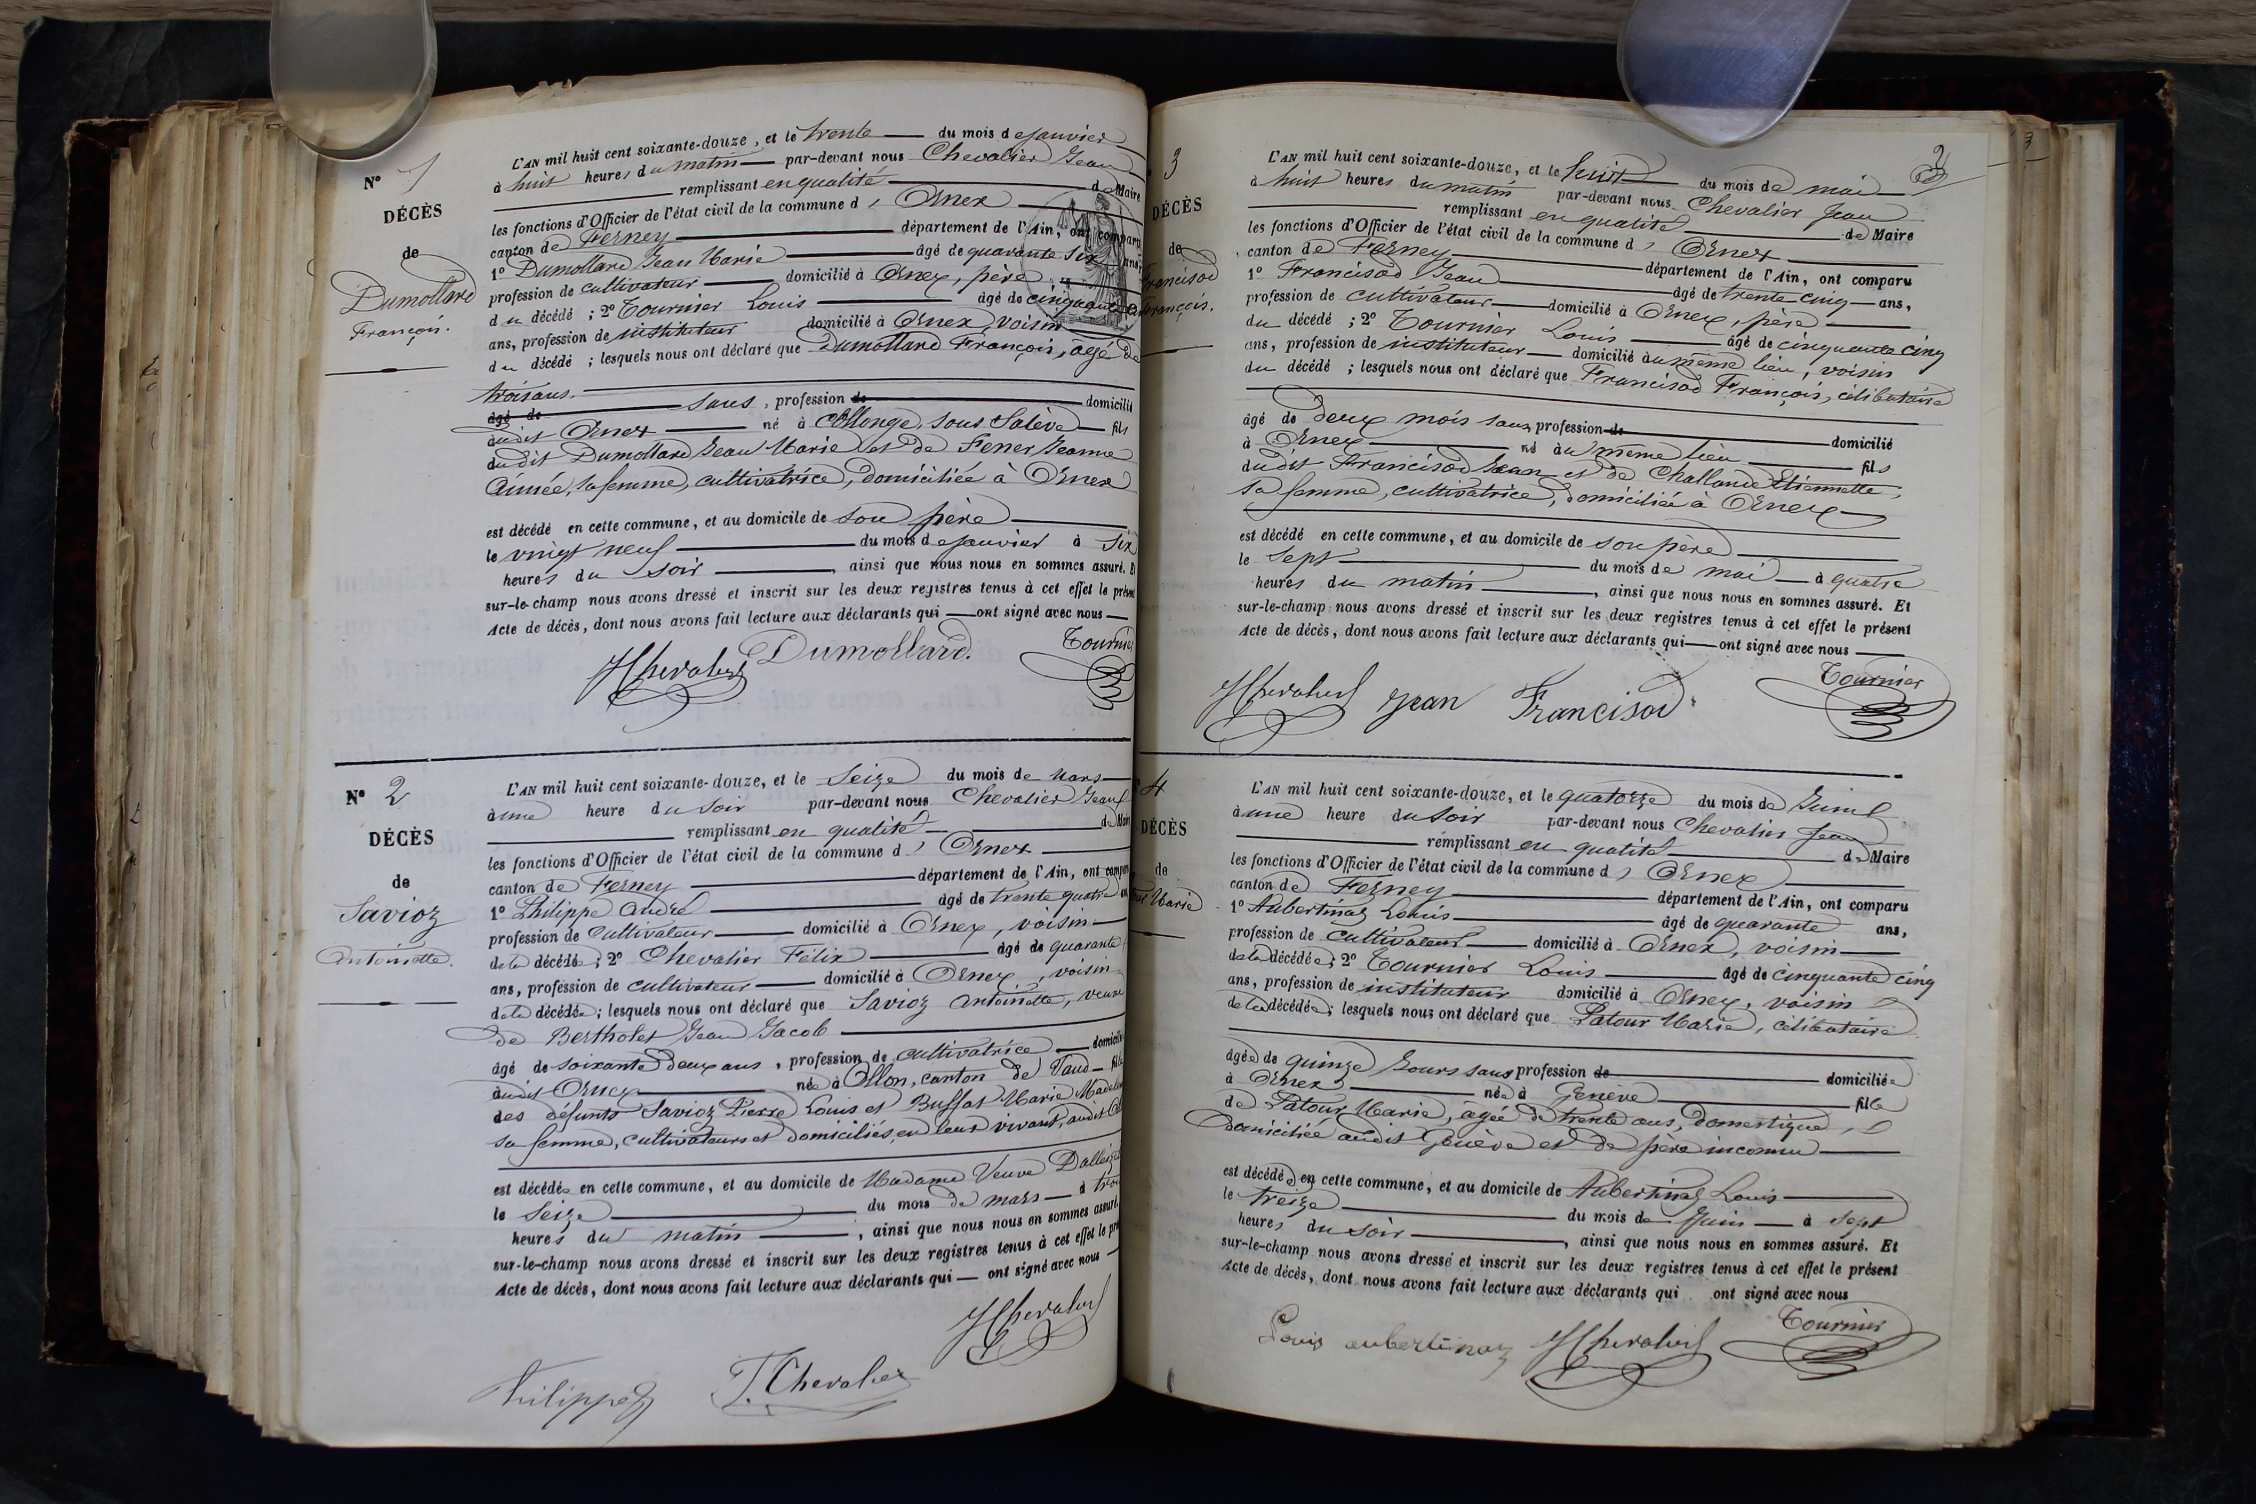 N° 1
DÉCÈS
de
Dumollard
François.
L'AN mil huit cent soixante-douze, et le trente du mois de janvier
à huit heures du matin par-devant nous Chevalier Jean
remplissant en qualité de Maire
les fonctions d'Officier de l'état civil de la commune d'Ornex
canton de Ferney département de l'Ain, ont comparu
1° Dumollard Jean Marie âgé de quarante six ans,
profession de cultivateur domicilié à Ornex, père
du décédé ; 2° Tournier Louis âgé de cinquante
ans, profession de instituteur domicilié à Ornex, voisin
du décédé ; lesquels nous ont déclaré que Dumollard François, âgé de
trois ans.
âgé de sans, profession de domicilié
audit Ornex né à Collonge, sous Salève fils
dudit Dumollard Jean Marie et de Fener Jeanne
Aimée, sa femme, cultivatrice, domiciliée à Ornex
est décédé en cette commune, et au domicile de son père
le vingt neuf du mois de janvier à six
heures du soir, ainsi que nous nous en sommes assuré. Et
sur-le-champ nous avons dressé et inscrit sur les deux registres tenus à cet effet le présent
Acte de décès, dont nous avons fait lecture aux déclarants qui ont signé avec nous
JChevalier Dumollard. Tournier
N° 2
DÉCÈS
de
Savioz
Antoinette.
L'AN mil huit cent soixante-douze, et le seize du mois de mars
à une heure du soir par-devant nous Chevalier Jean
remplissant en qualité de Maire
les fonctions d'Officier de l'état civil de la commune d'Ornex
canton de Ferney département de l'Ain, ont comparu
1° Philippe André âgé de trente quatre ans
profession de cultivateur domicilié à Ornex, voisin
de la décédée ; 2° Chevalier Félix âgé de quarante
ans, profession de cultivateur domicilié à Ornex, voisin
de la décédée ; lesquels nous ont déclaré que Savioz Antoinette, veuve
de Bertholet Jean Jacob
âgé de soixante deux ans, profession de cultivatrice domicilié
audit Ornex née à Ollon, canton de Vaud fille
des défunts Savioz Pierre Louis et Buffat Marie Madeleine
sa femme, cultivateurs et domiciliés, en leur vivant, audit
est décédée en cette commune, et au domicile de Madame Veuve
le seize du mois de mars à trois
heures du matin, ainsi que nous nous en sommes assuré.
sur-le-champ nous avons dressé et inscrit sur les deux registres tenus à cet effet le
Acte de décès, dont nous avons fait lecture aux déclarants qui ont signé avec nous
JChevalier
Philippe F. Chevalier
3
2
3
DÉCÈS
de
Francisod
François.
L'AN mil huit cent soixante-douze, et le huit du mois de mai
à huit heures du matin par-devant nous Chevalier Jean
remplissant en qualité de Maire
les fonctions d'Officier de l'état civil de la commune d'Ornex
canton de Ferney département de l'Ain, ont comparu
1° Francisod Jean âgé de trente cinq ans,
profession de cultivateur domicilié à Ornex, père
du décédé ; 2° Tournier Louis âgé de cinquante cinq
ans, profession de instituteur domicilié au même lieu, voisin
du décédé ; lesquels nous ont déclaré que Francisod François, célibataire
âgé de deux mois sans profession de domicilié
à Ornex né au même lieu fils
dudit Francisod Jean et de Challande Etiennette,
sa femme, cultivatrice, domiciliée à Ornex
est décédé en cette commune, et au domicile de son père
le sept du mois de mai à quatre
heures du matin, ainsi que nous nous en sommes assuré. Et
sur-le-champ nous avons dressé et inscrit sur les deux registres tenus à cet effet le présent
Acte de décès, dont nous avons fait lecture aux déclarants qui ont signé avec nous
JChevalier Jean Francisod Tournier
4
DÉCÈS
de
Marie
L'AN mil huit cent soixante-douze, et le quatorze du mois de Juin
à une heure du soir par-devant nous Chevalier Jean
remplissant en qualité de Maire
les fonctions d'Officier de l'état civil de la commune d'Ornex
canton de Ferney département de l'Ain, ont comparu
1° Aubertinaz Louis âgé de quarante ans,
profession de cultivateur domicilié à Ornex, voisin
de la décédée ; 2° Tournier Louis âgé de cinquante cinq
ans, profession de instituteur domicilié à Ornex, voisin
de la décédée ; lesquels nous ont déclaré que Latour Marie, célibataire
âgée de quinze jours sans profession de domiciliée
à Ornex née à Genève fille
de Latour Marie, âgée de trente ans, domestique,
domiciliée audit Genève et de père inconnu
est décédée en cette commune, et au domicile de Aubertinaz Louis
le treize du mois de Juin à sept
heures du soir, ainsi que nous nous en sommes assuré. Et
sur-le-champ nous avons dressé et inscrit sur les deux registres tenus à cet effet le présent
Acte de décès, dont nous avons fait lecture aux déclarants qui ont signé avec nous
Louis aubertinaz JChevalier Tournier